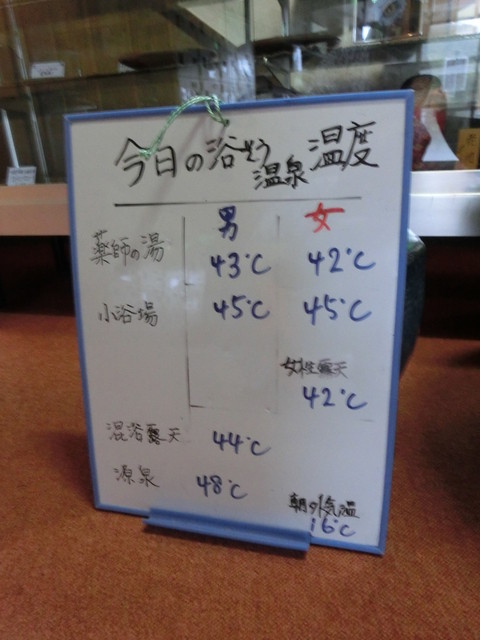 今日の浴そう温泉温度
男 女
薬師の湯 43℃ 42℃
小浴場 45℃ 45℃
女性露天
42℃
混浴露天 44℃
源泉 48℃
朝の外気温
16℃